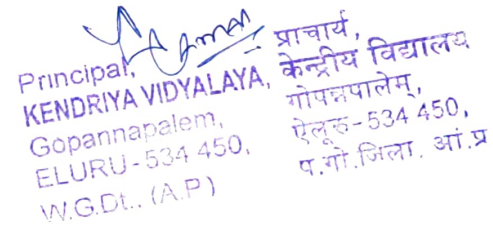 Principal,
KENDRIYA VIDYALAYA,
Gopannapalem,
ELURU-534 450,
W.G.Dt., (A.P)
प्राचार्य,
केन्द्रीय विद्यालय
गोपन्नपालेम्,
ऐलूरु-534 450,
प.गो.जिला. आं.प्र